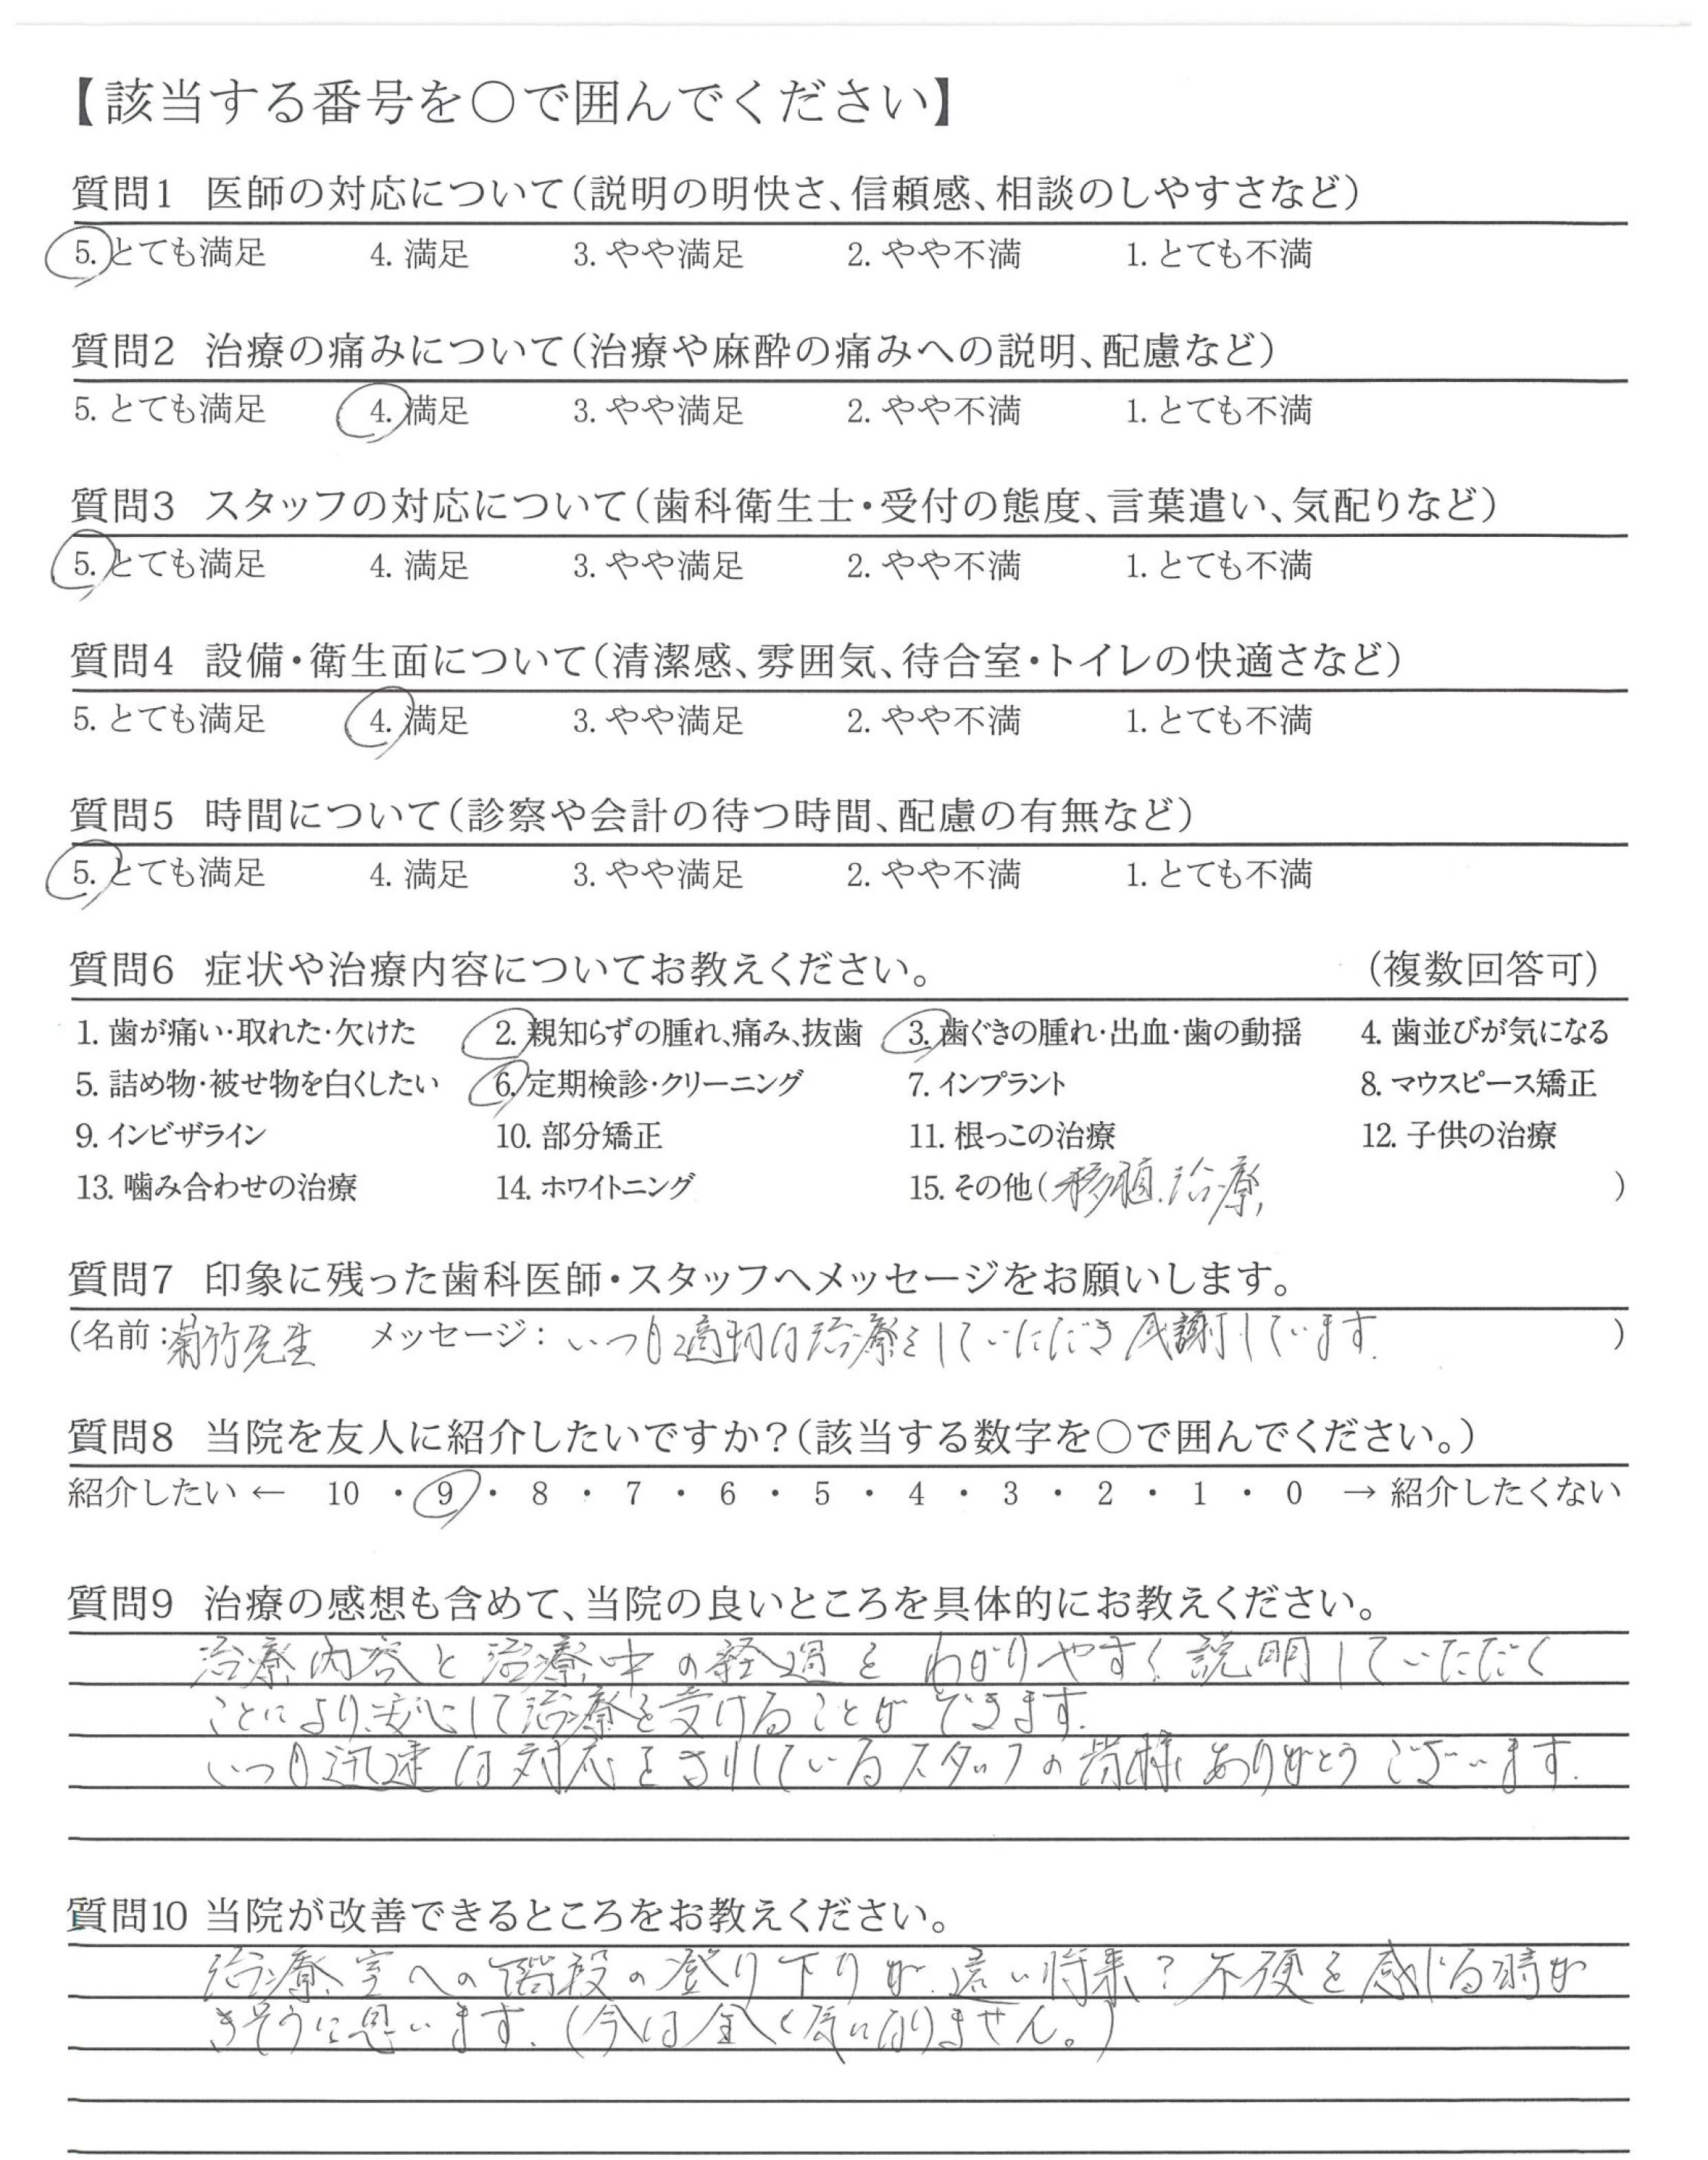 【該当する番号を○で囲んでください】
質問1 医師の対応について(説明の明快さ、信頼感、相談のしやすさなど)
5. とても満足 4. 満足 3. やや満足 2. やや不満 1. とても不満
質問2 治療の痛みについて(治療や麻酔の痛みへの説明、配慮など)
5. とても満足 4. 満足 3. やや満足 2. やや不満 1. とても不満
質問3 スタッフの対応について(歯科衛生士・受付の態度、言葉遣い、気配りなど)
5. とても満足 4. 満足 3. やや満足 2. やや不満 1. とても不満
質問4 設備・衛生面について(清潔感、雰囲気、待合室・トイレの快適さなど)
5. とても満足 4. 満足 3. やや満足 2. やや不満 1. とても不満
質問5 時間について(診察や会計の待つ時間、配慮の有無など)
5. とても満足 4. 満足 3. やや満足 2. やや不満 1. とても不満
質問6 症状や治療内容についてお教えください。 (複数回答可)
1. 歯が痛い・取れた・欠けた 2. 親知らずの腫れ、痛み、抜歯 3. 歯ぐきの腫れ・出血・歯の動揺 4. 歯並びが気になる
5. 詰め物・被せ物を白くしたい 6. 定期検診・クリーニング 7. インプラント 8. マウスピース矯正
9. インビザライン 10. 部分矯正 11. 根っこの治療 12. 子供の治療
13. 噛み合わせの治療 14. ホワイトニング 15. その他(移植治療)
質問7 印象に残った歯科医師・スタッフへメッセージをお願いします。
(名前:菊竹先生 メッセージ: いつも適切な治療をしていただき感謝しています.)
質問8 当院を友人に紹介したいですか?(該当する数字を○で囲んでください。)
紹介したい ← 10 ・ 9 ・ 8 ・ 7 ・ 6 ・ 5 ・ 4 ・ 3 ・ 2 ・ 1 ・ 0 → 紹介したくない
質問9 治療の感想も含めて、当院の良いところを具体的にお教えください。
治療内容と治療中の経過をわかりやすく説明していただく
ことにより、安心して治療を受けることができます.
いつも迅速な対応をされているスタッフの皆様ありがとうございます.
質問10 当院が改善できるところをお教えください。
治療室への階段の登り下りが、遠い将来?不便を感じる時が
きそうに思います.(今は全く気になりません。)